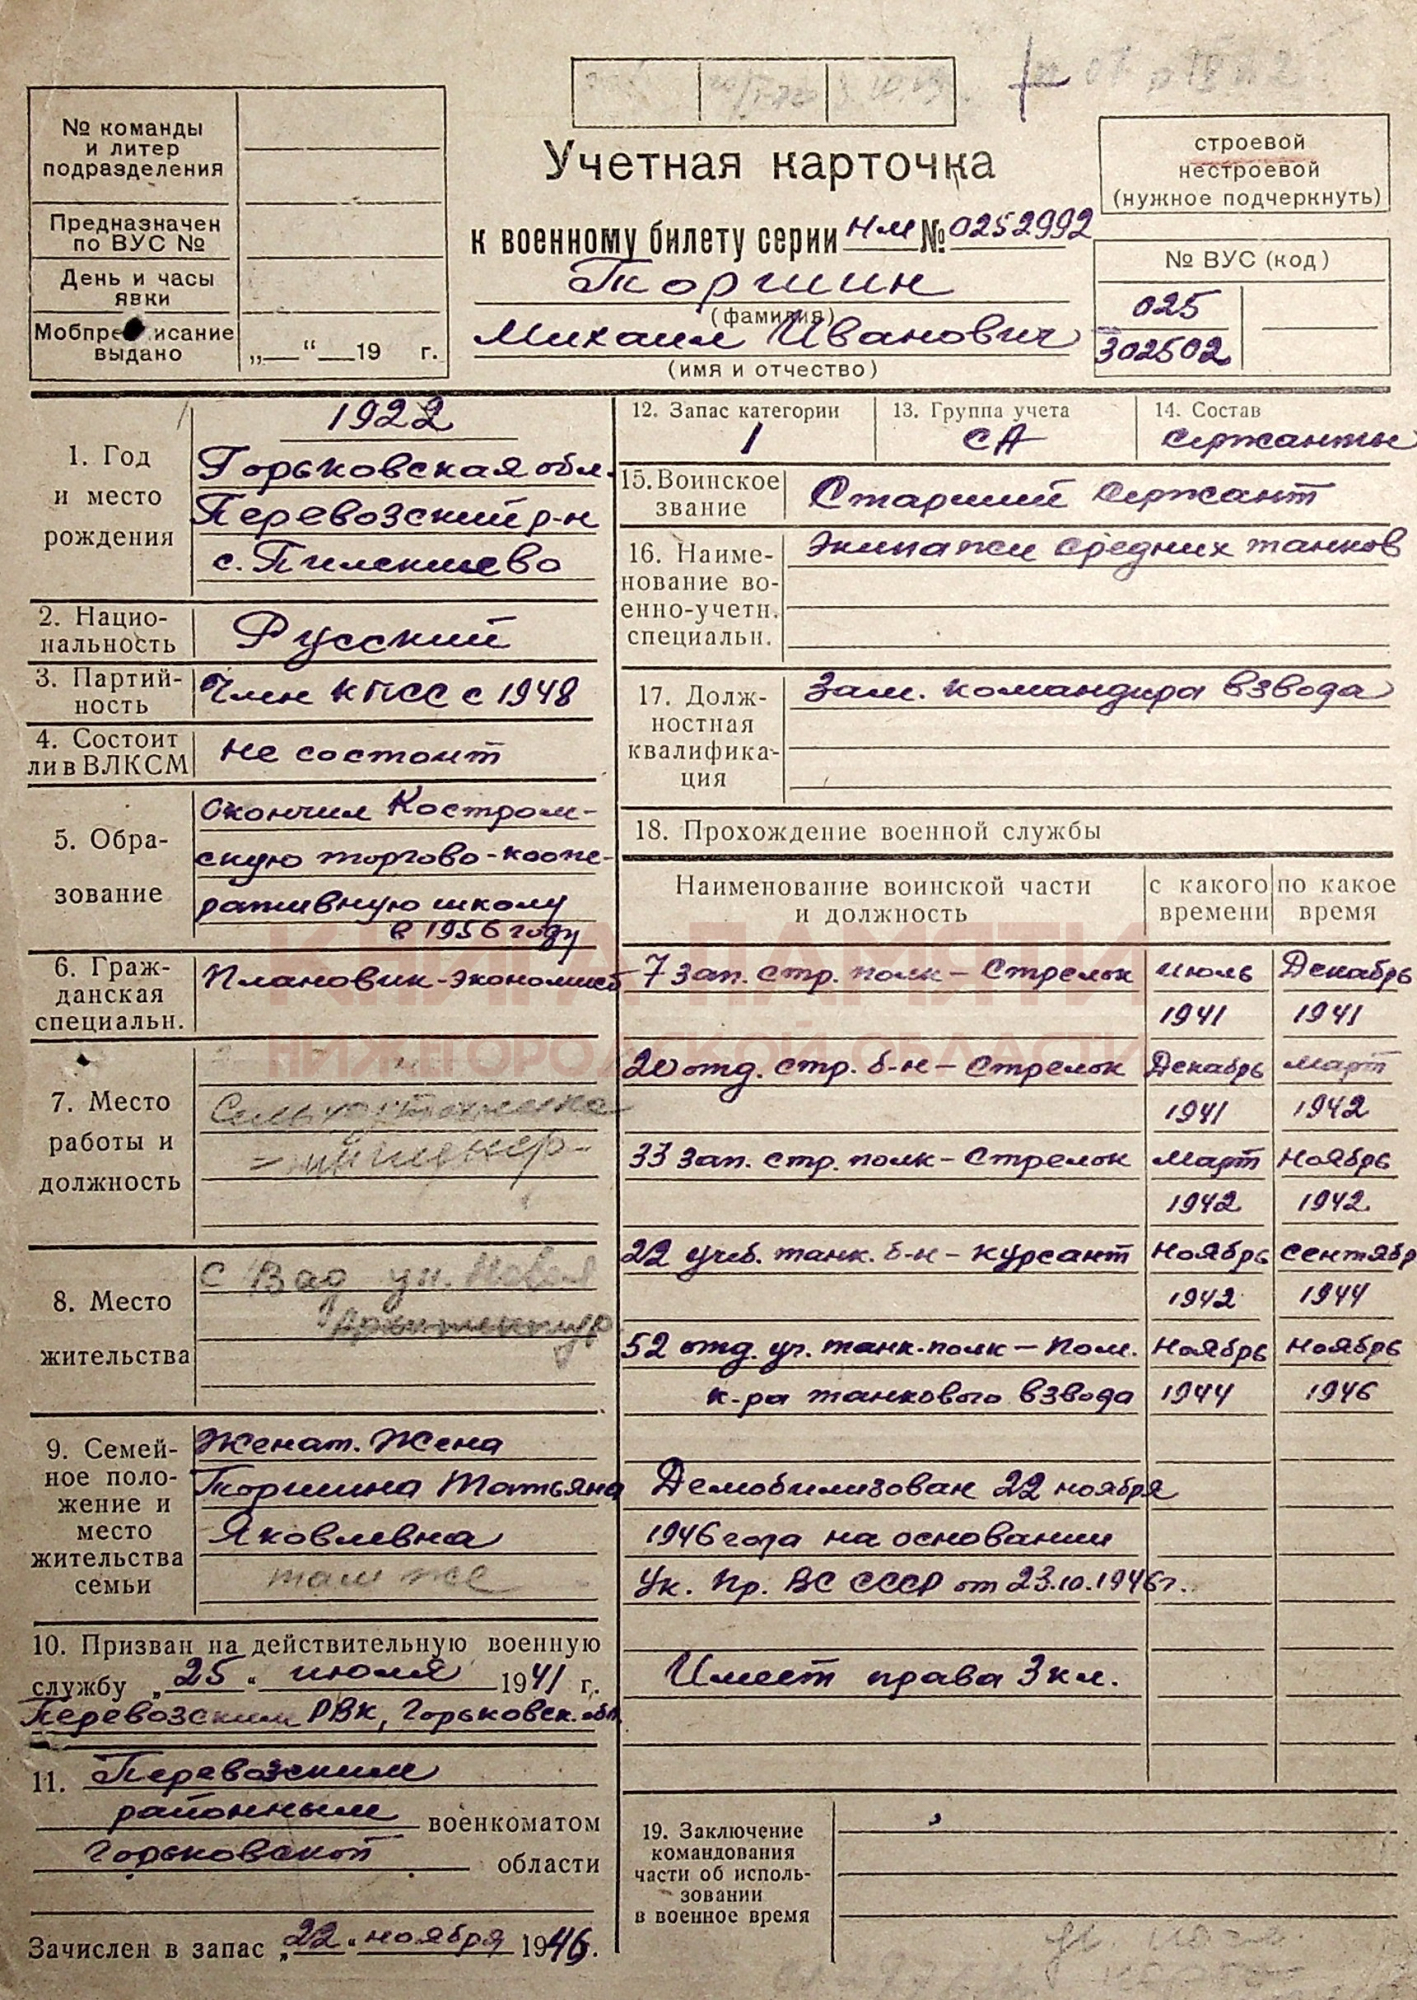 № команды
и литер
подразделения
Предназначен
по ВУС №
День и часы
явки
Мобпре исание
выдано
„ “ 19 г.
Учетная карточка
к военному билету серии НМ № 0252992
Торшин
(фамилия)
Михаил Иванович
(имя и отчество)
строевой
нестроевой
(нужное подчеркнуть)
№ ВУС (код)
025
302502
1. Год
и место
рождения
1922
Горьковская обл.
Перевозский р-н
с. Пилекшево
2. Нацио-
нальность
Русский
3. Партий-
ность
Член КПСС с 1948
4. Состоит
ли в ВЛКСМ
Не состоит
5. Обра-
зование
Окончил Костром-
скую торгово-коопе-
ративную школу
в 1956 году
6. Граж-
данская
специальн.
Плановик-экономист
7. Место
работы и
должность
Сельхозтехника
- инженер-
8. Место
жительства
с Вад ул. Новая
9. Семей-
ное поло-
жение и
место
жительства
семьи
Женат. Жена
Торшина Татьяна
Яковлевна
там же
10. Призван на действительную военную
службу „25“ июля 1941 г.
Перевозским РВК, Горьковск. обл.
11. Перевозским
районным военкоматом
Горьковской области
Зачислен в запас „22“ ноября 1946.
12. Запас категории
1
13. Группа учета
СА
14. Состав
сержанты
15. Воинское
звание
Старший сержант
16. Наиме-
нование во-
енно-учетн.
специальн.
Экипажи средних танков
17. Долж-
ностная
квалифика-
ция
Зам. командира взвода
18. Прохождение военной службы
Наименование воинской части
и должность
с какого
времени
по какое
время
7 зап. стр. полк - Стрелок Июль Декабрь
1941 1941
20 отд. стр. б-н - Стрелок Декабрь Март
1941 1942
33 зап. стр. полк - Стрелок Март Ноябрь
1942 1942
22 учеб. танк. б-н - курсант Ноябрь Сентябр
1942 1944
52 отд. уч. танк. полк - Пом. Ноябрь Ноябрь
к-ра танкового взвода 1944 1946
Демобилизован 22 ноября
1946 года на основании
Ук. Пр. ВС СССР от 23.10.1946 г.
Имеет права 3 кл.
19. Заключение
командования
части об исполь-
зовании
в военное время
КНИГА ПАМЯТИ
НИЖЕГОРОДСКОЙ ОБЛАСТИ